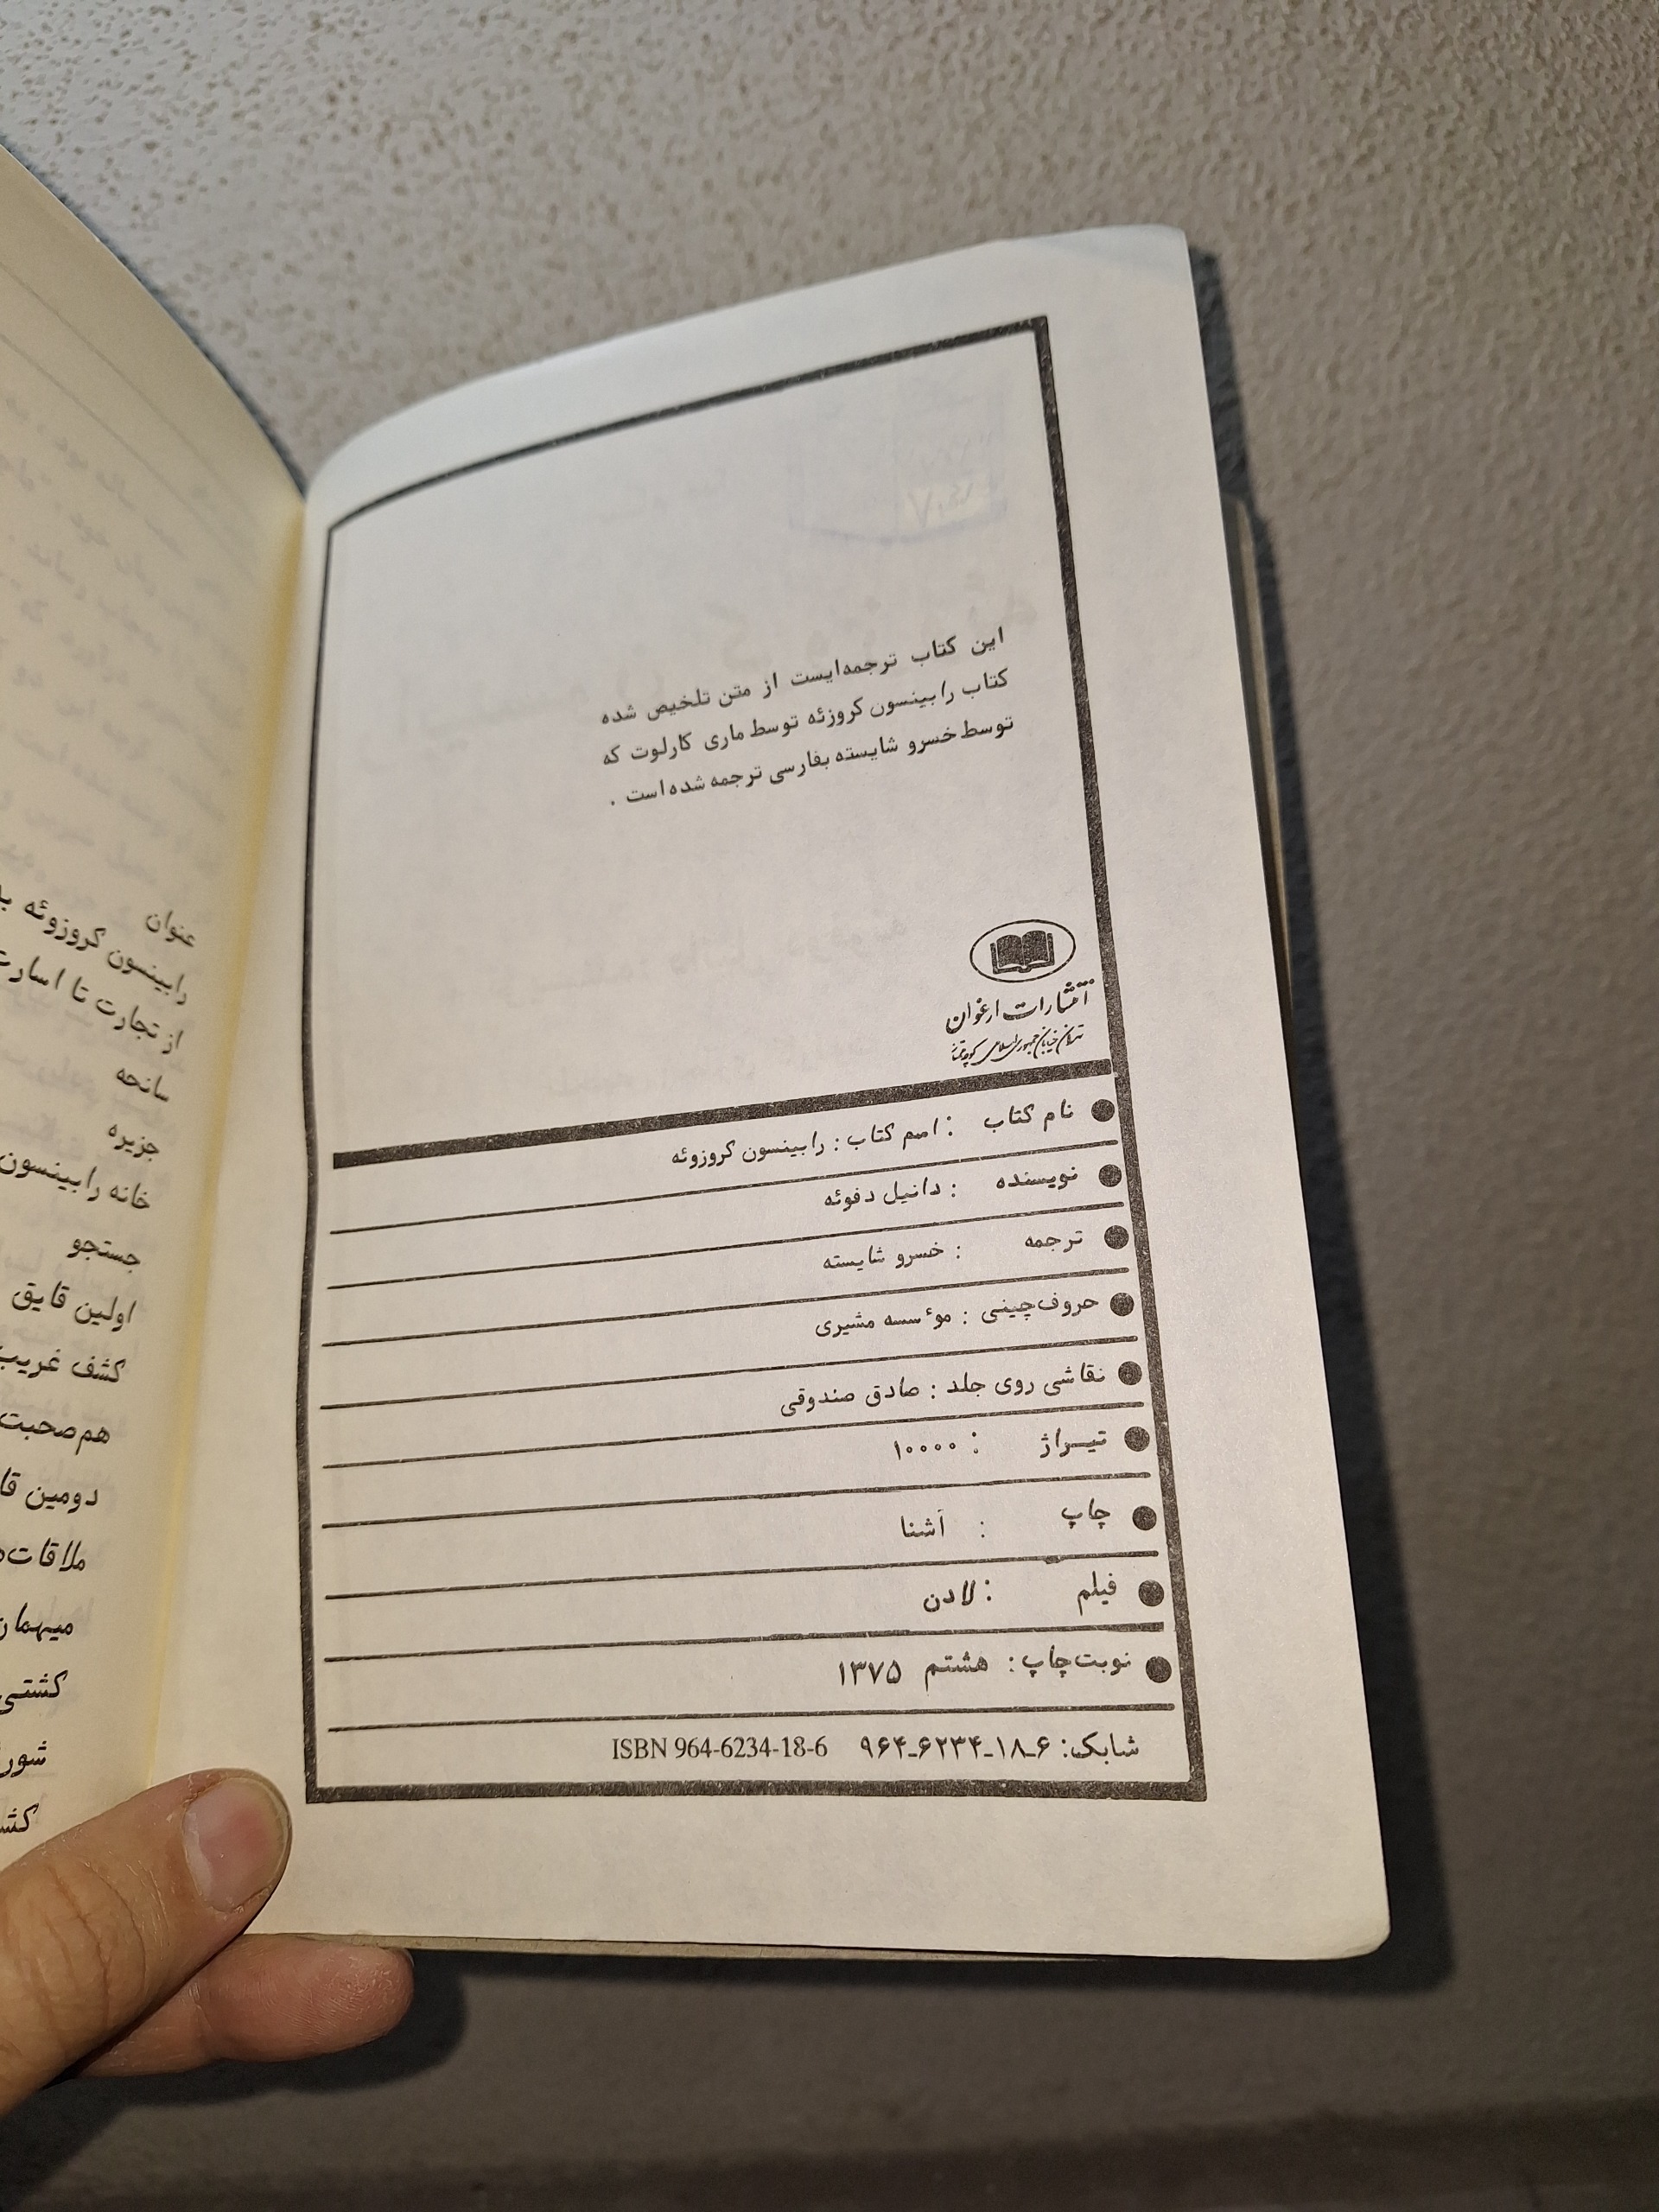 این کتاب ترجمه‌ایست از متن تلخیص شده
کتاب رابینسون کروزئه توسط ماری کارلوت که
توسط خسرو شایسته بفارسی ترجمه شده است .
انتشارات ارغوان
تهران خیابان جمهوری اسلامی
نام کتاب : اسم کتاب : رابینسون کروزوئه
نویسنده : دانیل دفوئه
ترجمه : خسرو شایسته
حروف‌چینی : موٴسسه مشیری
نقاشی روی جلد : صادق صندوقی
تیراژ : ۱۰۰۰۰
چاپ : آشنا
فیلم : لادن
نوبت چاپ : هشتم ۱۳۷۵
شابک: ۶-۱۸-۶۲۳۴-۹۶۴ ISBN 964-6234-18-6
عنوان
رابینسون کروزوئه
از تجارت تا اسارت
سانحه
جزیره
خانه رابینسون
جستجو
اولین قایق
کشف غریب
هم‌صحبت
دومین
ملاقات
میهمان
کشتی